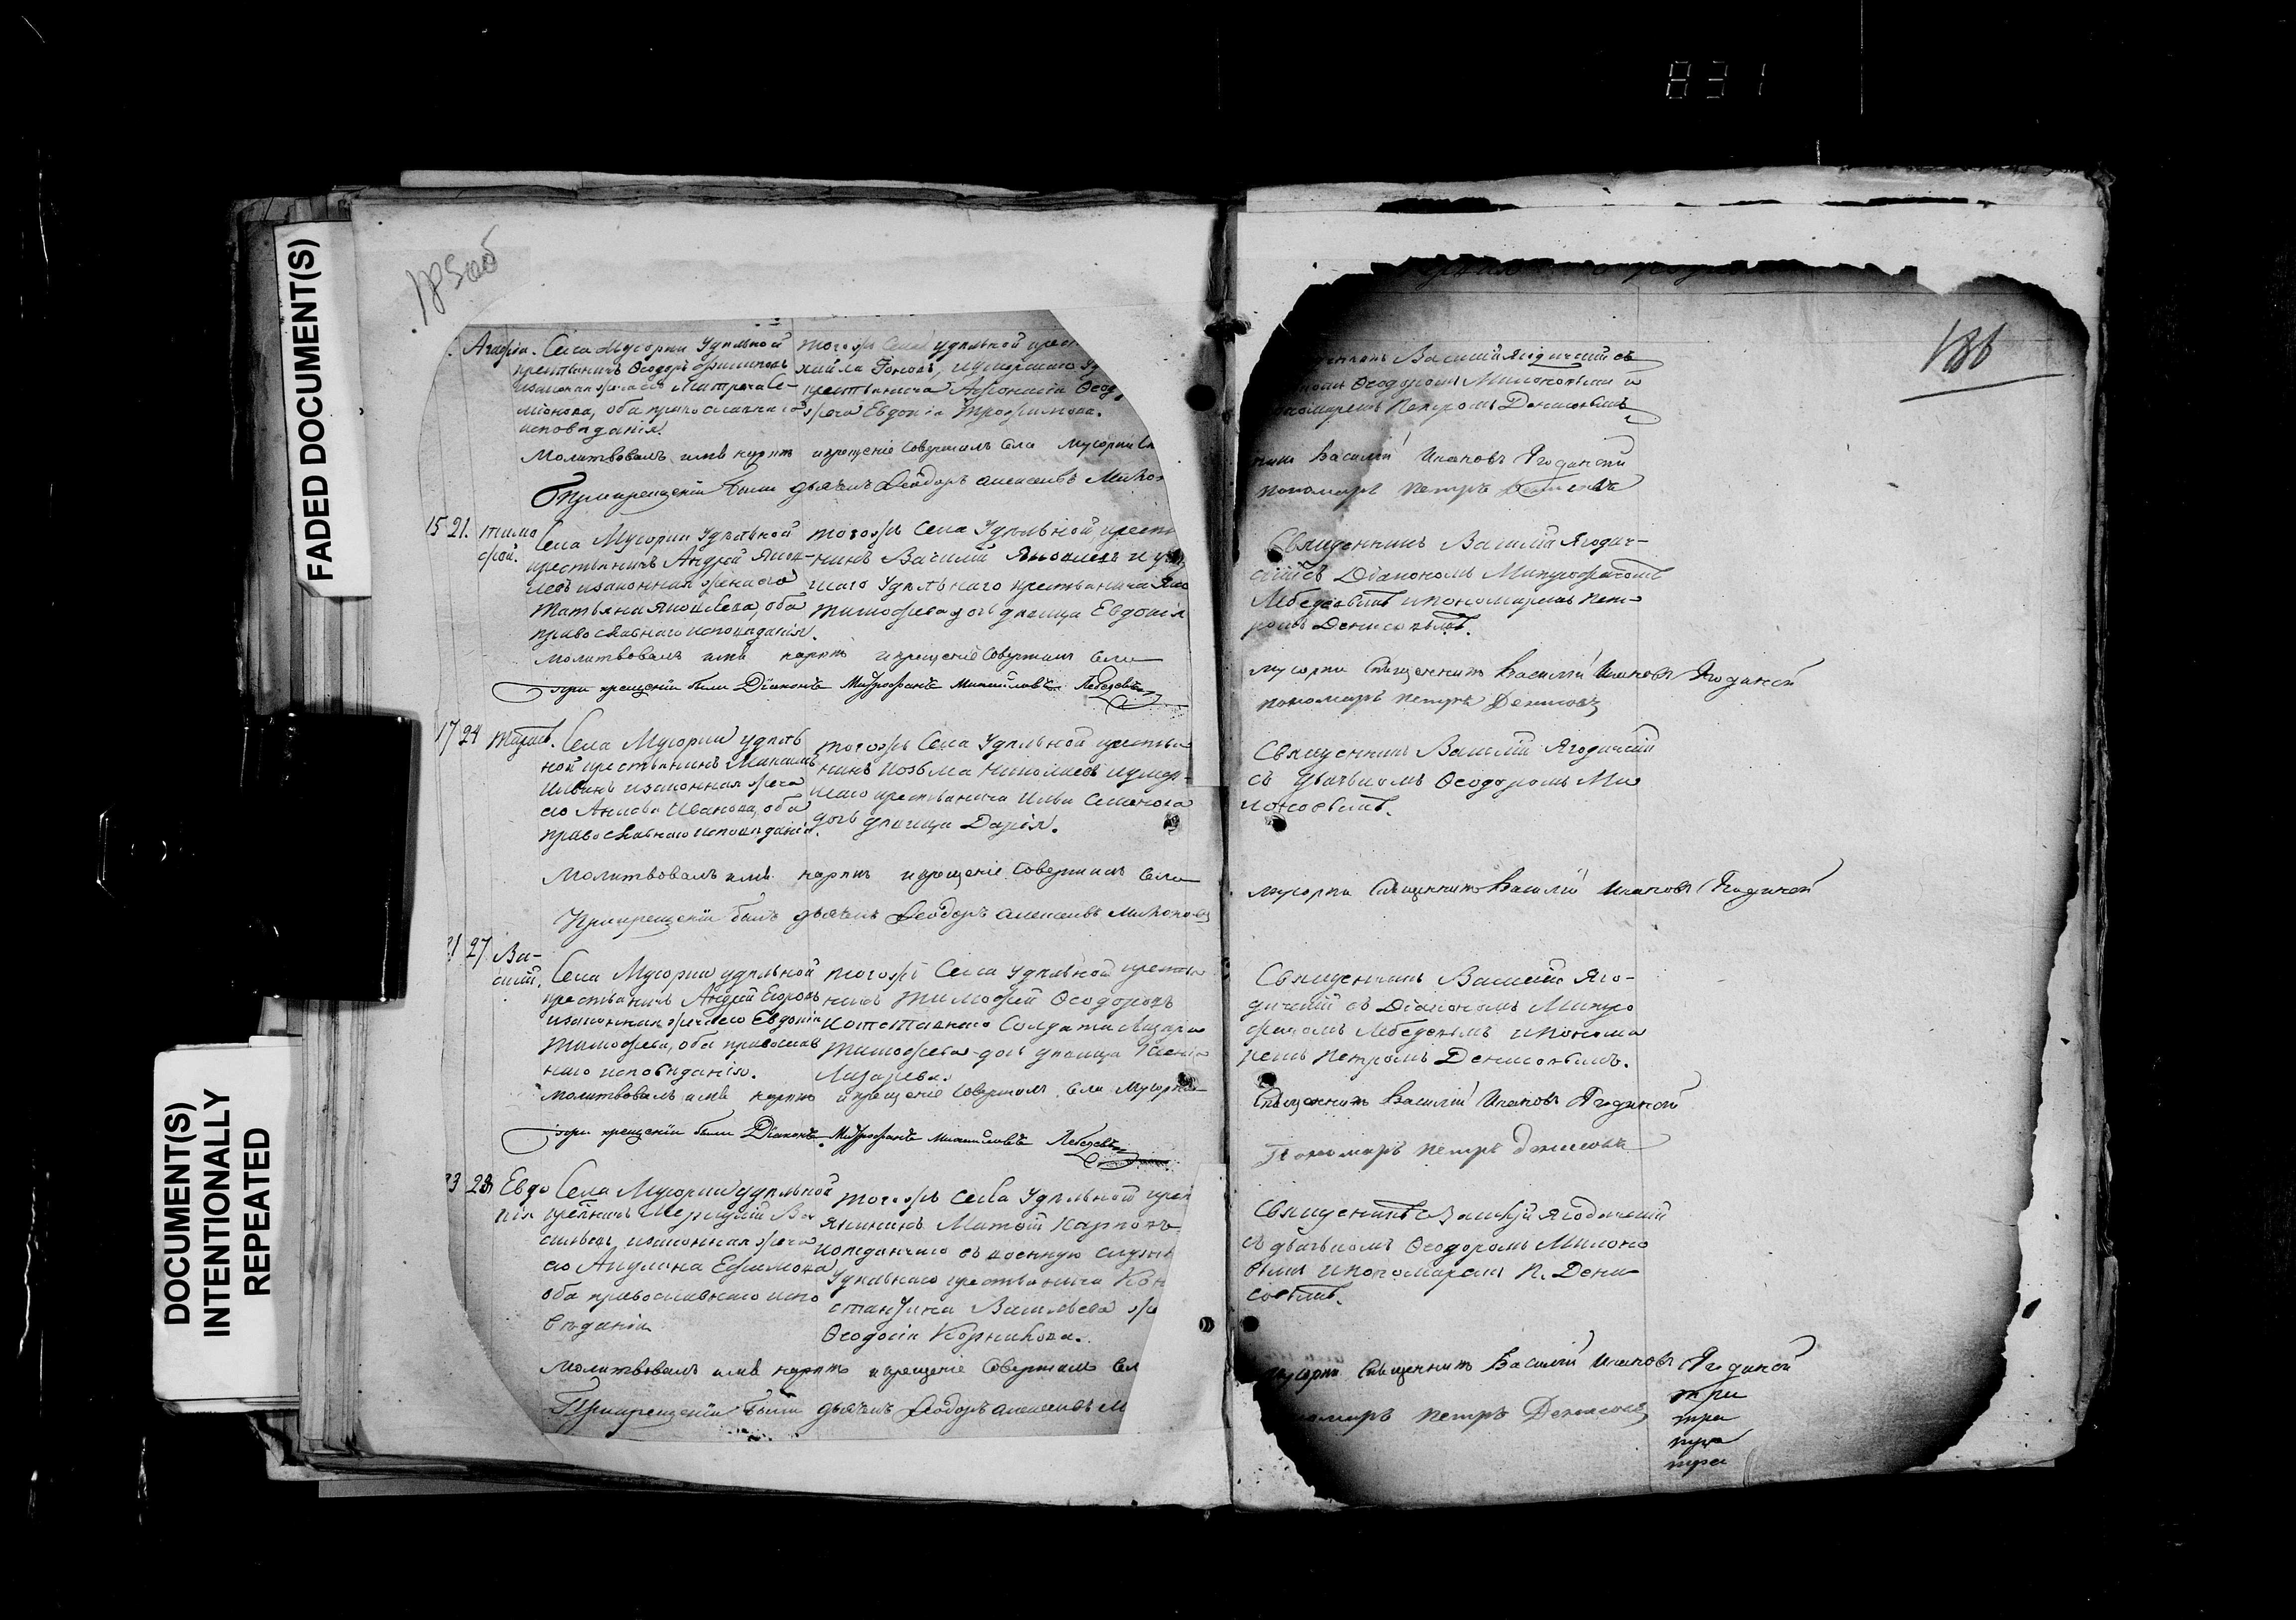 831
FADED DOCUMENT(S)
DOCUMENT(S)
INTENTIONALLY
REPEATED
185 об
Села Мусорки Удѣльной
крестьянинъ Ѳеодоръ
законная жена его Матрена Се-
мiонова, оба православнаго
исповѣданiя.
тогожъ Села удѣльной крест
жена Евдокiя Трофимова.
Молитвовалъ имя нарекъ и крещенiе совершилъ села Мусорки
При крещенiи были дьячекъ Ѳеодоръ Алексѣевъ
15 21. Тимо
фей.
Села Мусорки Удѣльной
крестьянинъ Андрей Яков-
левъ и законная жена его
Татьяна Яковлева, оба
православнаго исповѣданiя.
тогожъ Села Удѣльной крест
нинъ Василiй Яковлевъ и у
шаго Удѣльнаго крестьянина Яко
Тимофеева дочь дѣвица Евдокiя
Молитвовалъ имя нарекъ и крещенiе совершилъ села
При крещенiи были Дiаконъ Митрофанъ Михайловъ Лебедевъ
17 24
Села Мусорки удѣль
ной крестьянинъ Михаилъ
Ильинъ и законная жена
его Анисья Иванова, оба
православнаго исповѣданiя.
тогожъ Села Удѣльной крестья
нинъ Козьма Николаевъ и умер-
шаго крестьянина Ильи Семенова
дочь дѣвица Дарiя.
Молитвовалъ имя нарекъ и крещенiе совершилъ села
При крещенiи былъ дьячекъ Ѳеодоръ Алексѣевъ Милоновъ
27 Ва-
силiй.
Села Мусорки удѣльной
крестьянинъ Андрей Егоровъ
и законная жена его Евдокiя
Тимофеева, оба православ
наго исповѣданiя.
тогожъ Села Удѣльной крестья
нинъ Тимофей Ѳеодоровъ
и отставнаго Солдата Лазаря
Тимофеева дочь дѣвица Ксенiя
Лазарева.
Молитвовалъ имя нарекъ и крещенiе совершилъ села Мусорки
При крещенiи были Дiаконъ Митрофанъ Михайловъ Лебедевъ
28 Евдо
кiя
Села Мусорки удѣльной
крестьянинъ Меркурiй Ва
сильевъ и законная жена
его Акулина Ефимова
оба православнаго испо
вѣданiя
тогожъ села Удѣльной крест
янинъ Матвей Карповъ
и отданнаго въ военную службу
Удѣльнаго крестьянина Кон
стантина Васильева же
Ѳеодосiя Корнилова.
Молитвовалъ имя нарекъ и крещенiе совершилъ сел
При крещенiи были дьячекъ Ѳеодоръ Алексѣевъ М
186
Василiй Ягодинскiй съ
Ѳеодоромъ Милоновымъ и
пономаремъ Петромъ Денисовымъ
Василiй Ивановъ Ягодинской
пономарь Петръ Денисовъ
Священникъ Василiй Ягодин-
скiй съ Дiакономъ Митрофаномъ
Лебедевымъ и пономаремъ Пет-
ромъ Денисовымъ.
Мусорки Священникъ Василiй Ивановъ Ягодинской
пономарь Петръ Денисовъ
Священникъ Василiй Ягодинскiй
съ дьячкомъ Ѳеодоромъ Ми
лоновымъ.
Мусорки Священникъ Василiй Ивановъ Ягодинской
Священникъ Василiй Яго-
динскiй съ Дiакономъ Митро
фаномъ Лебедевымъ и понома
ремъ Петромъ Денисовымъ.
Священникъ Василiй Ивановъ Ягодинской
Пономарь Петръ Денисовъ
Священникъ Василiй Ягодинскiй
съ дьячкомъ Ѳеодоромъ Милоно
вымъ и пономаремъ П. Дени
совымъ.
Мусорки Священникъ Василiй Ивановъ Ягодинской
пономарь Петръ Денисовъ
три
три
три
три